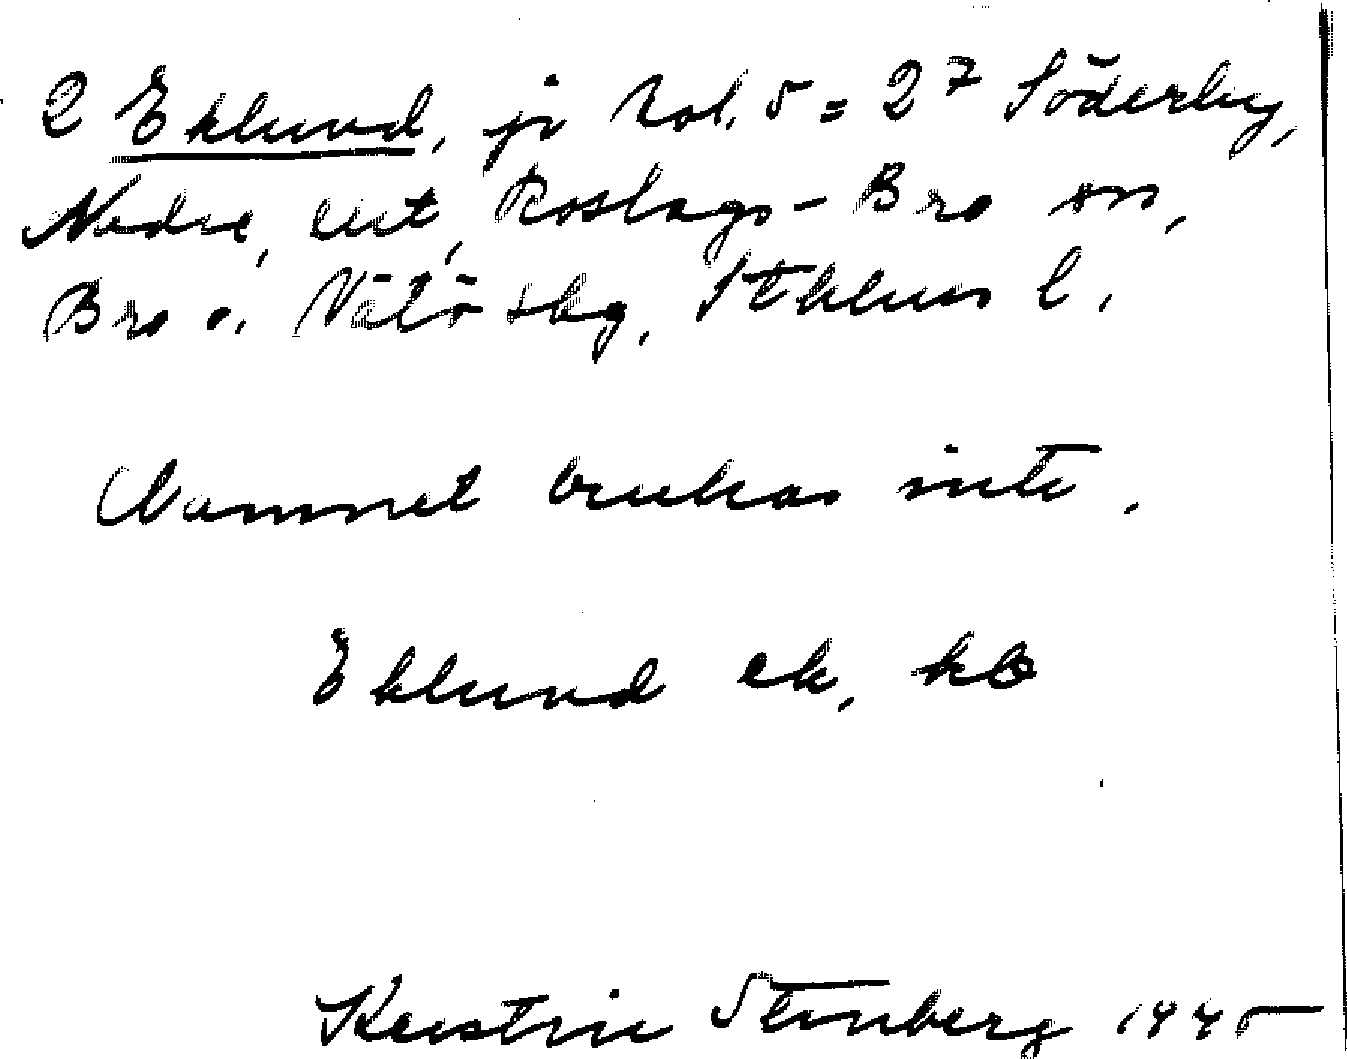 2 Eklund, jr kol. 5 = 2⁷ Söderby,
Nedre, Roslags-Bro sn,
Bro o. Vätö skg, Sthlms l.
Namnet brukas inte.
Eklund ek, kb
Kerstin Stenberg 1945